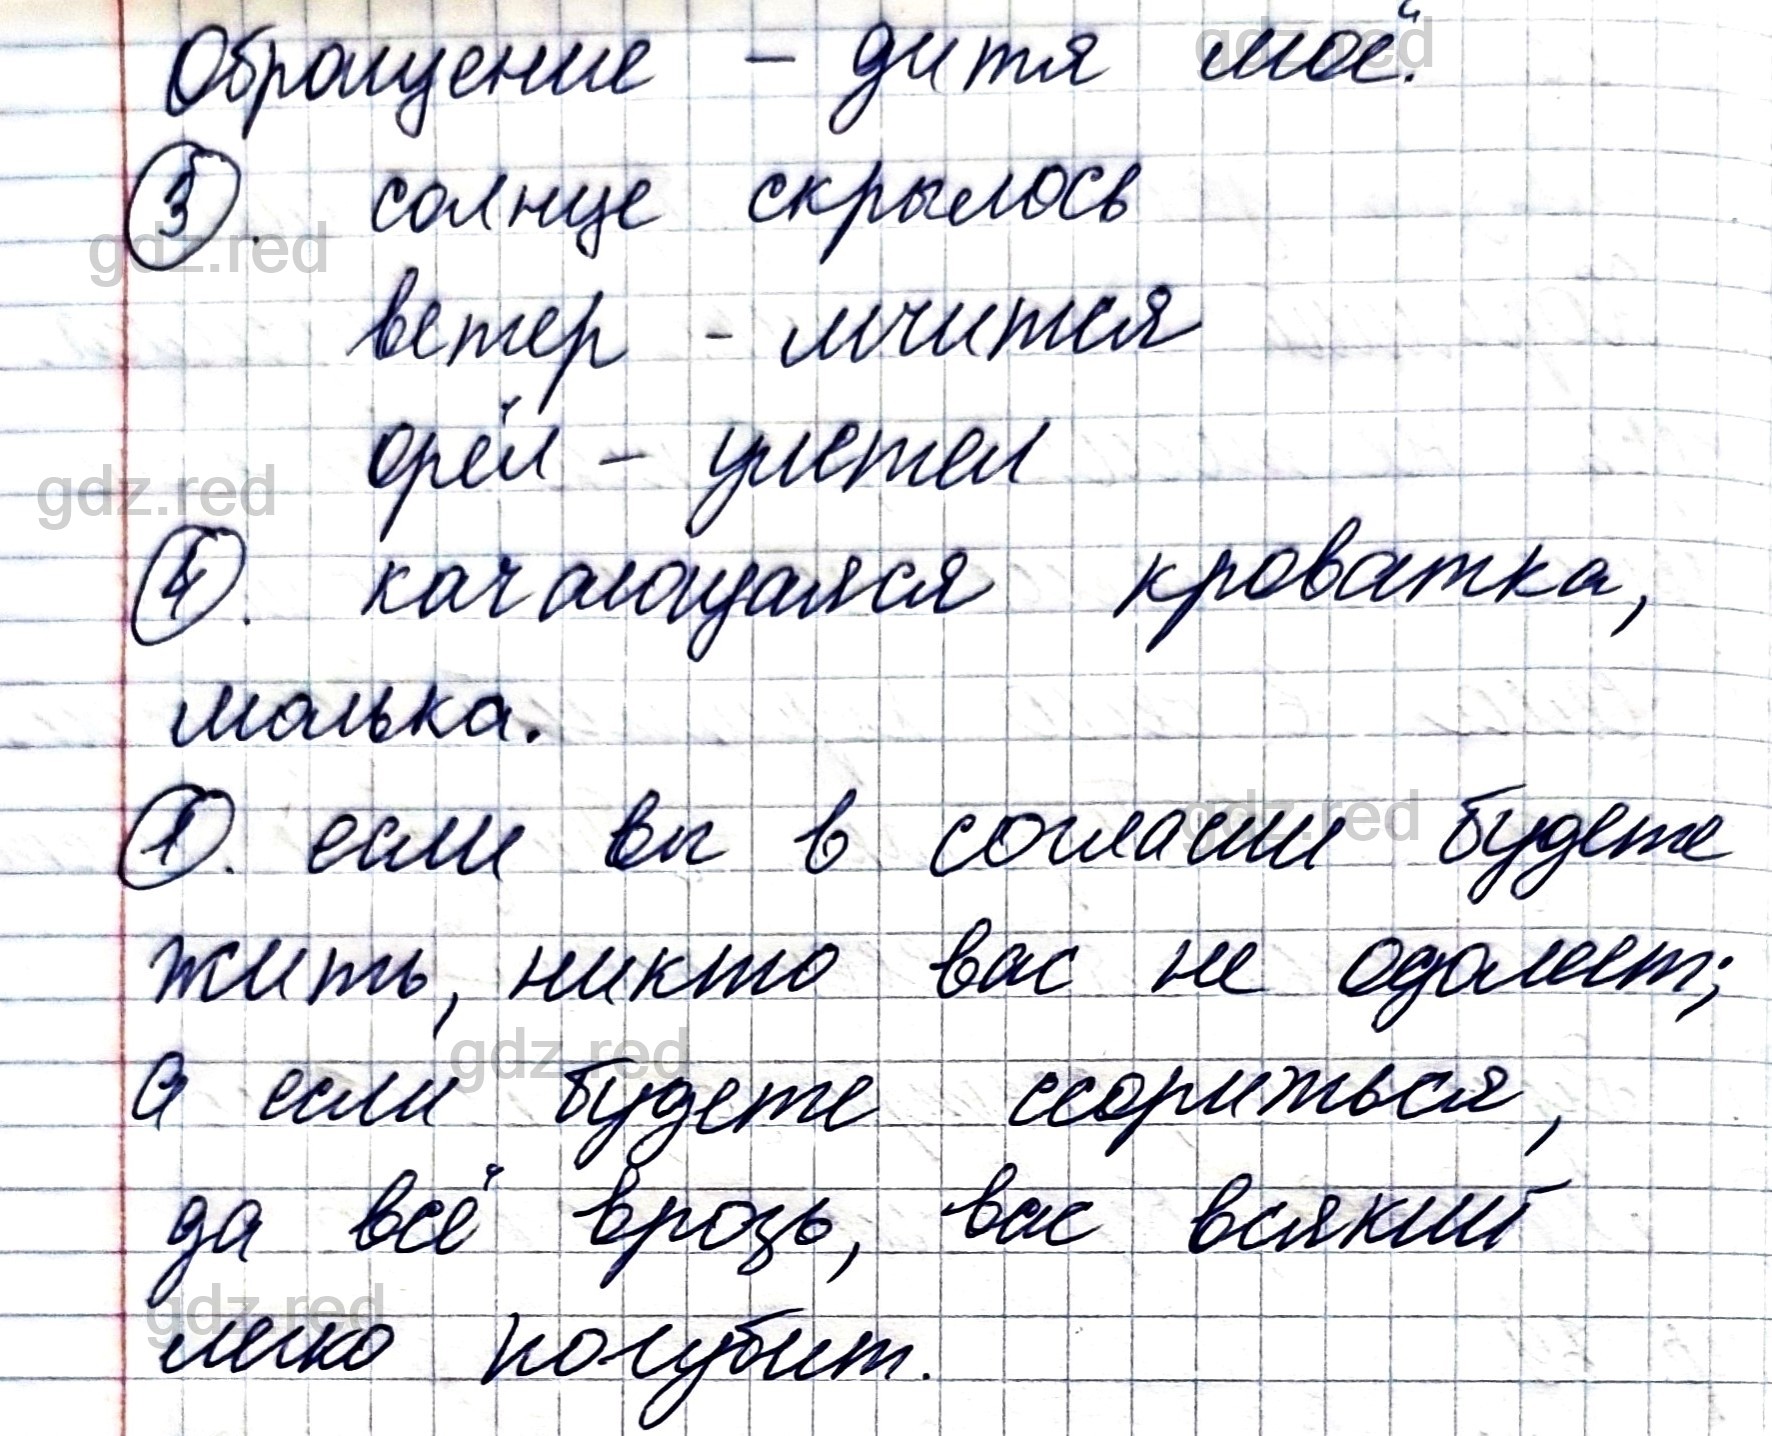 Обращение - дитя моё.
3. солнце скрылось
ветер - мчится
орёл - улетел
4. качающаяся кроватка,
малька.
1. если вы в согласии будете
жить, никто вас не одолеет;
а если будете ссориться,
да всё врозь, вас всякий
легко погубит.
gdz.red
gdz.red
gdz.red
gdz.red
gdz.red
gdz.red